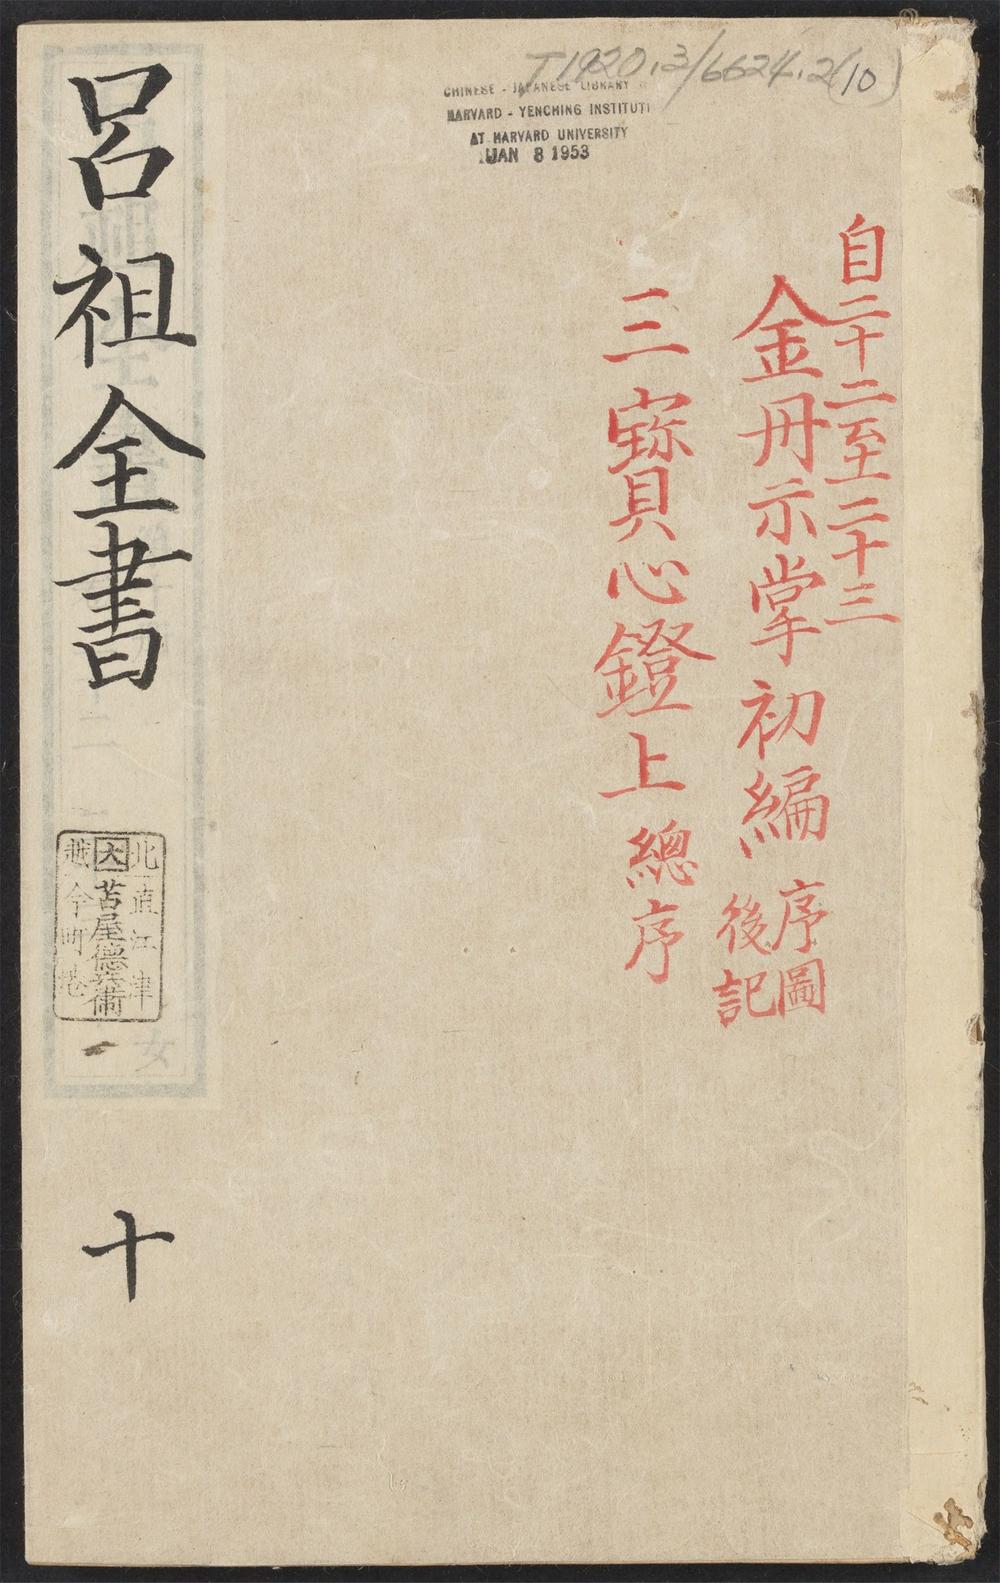 T1920.3/6624.2(10)
CHINESE - JAPANESE LIBRARY
HARVARD - YENCHING INSTITUTE
AT HARVARD UNIVERSITY
JAN 8 1953
自二十二至二十三
金丹示掌初編 序圖
後記
三寶心鐙上 總序
呂祖全書
十
北直江津
大 苫屋德兵衛
越今町港